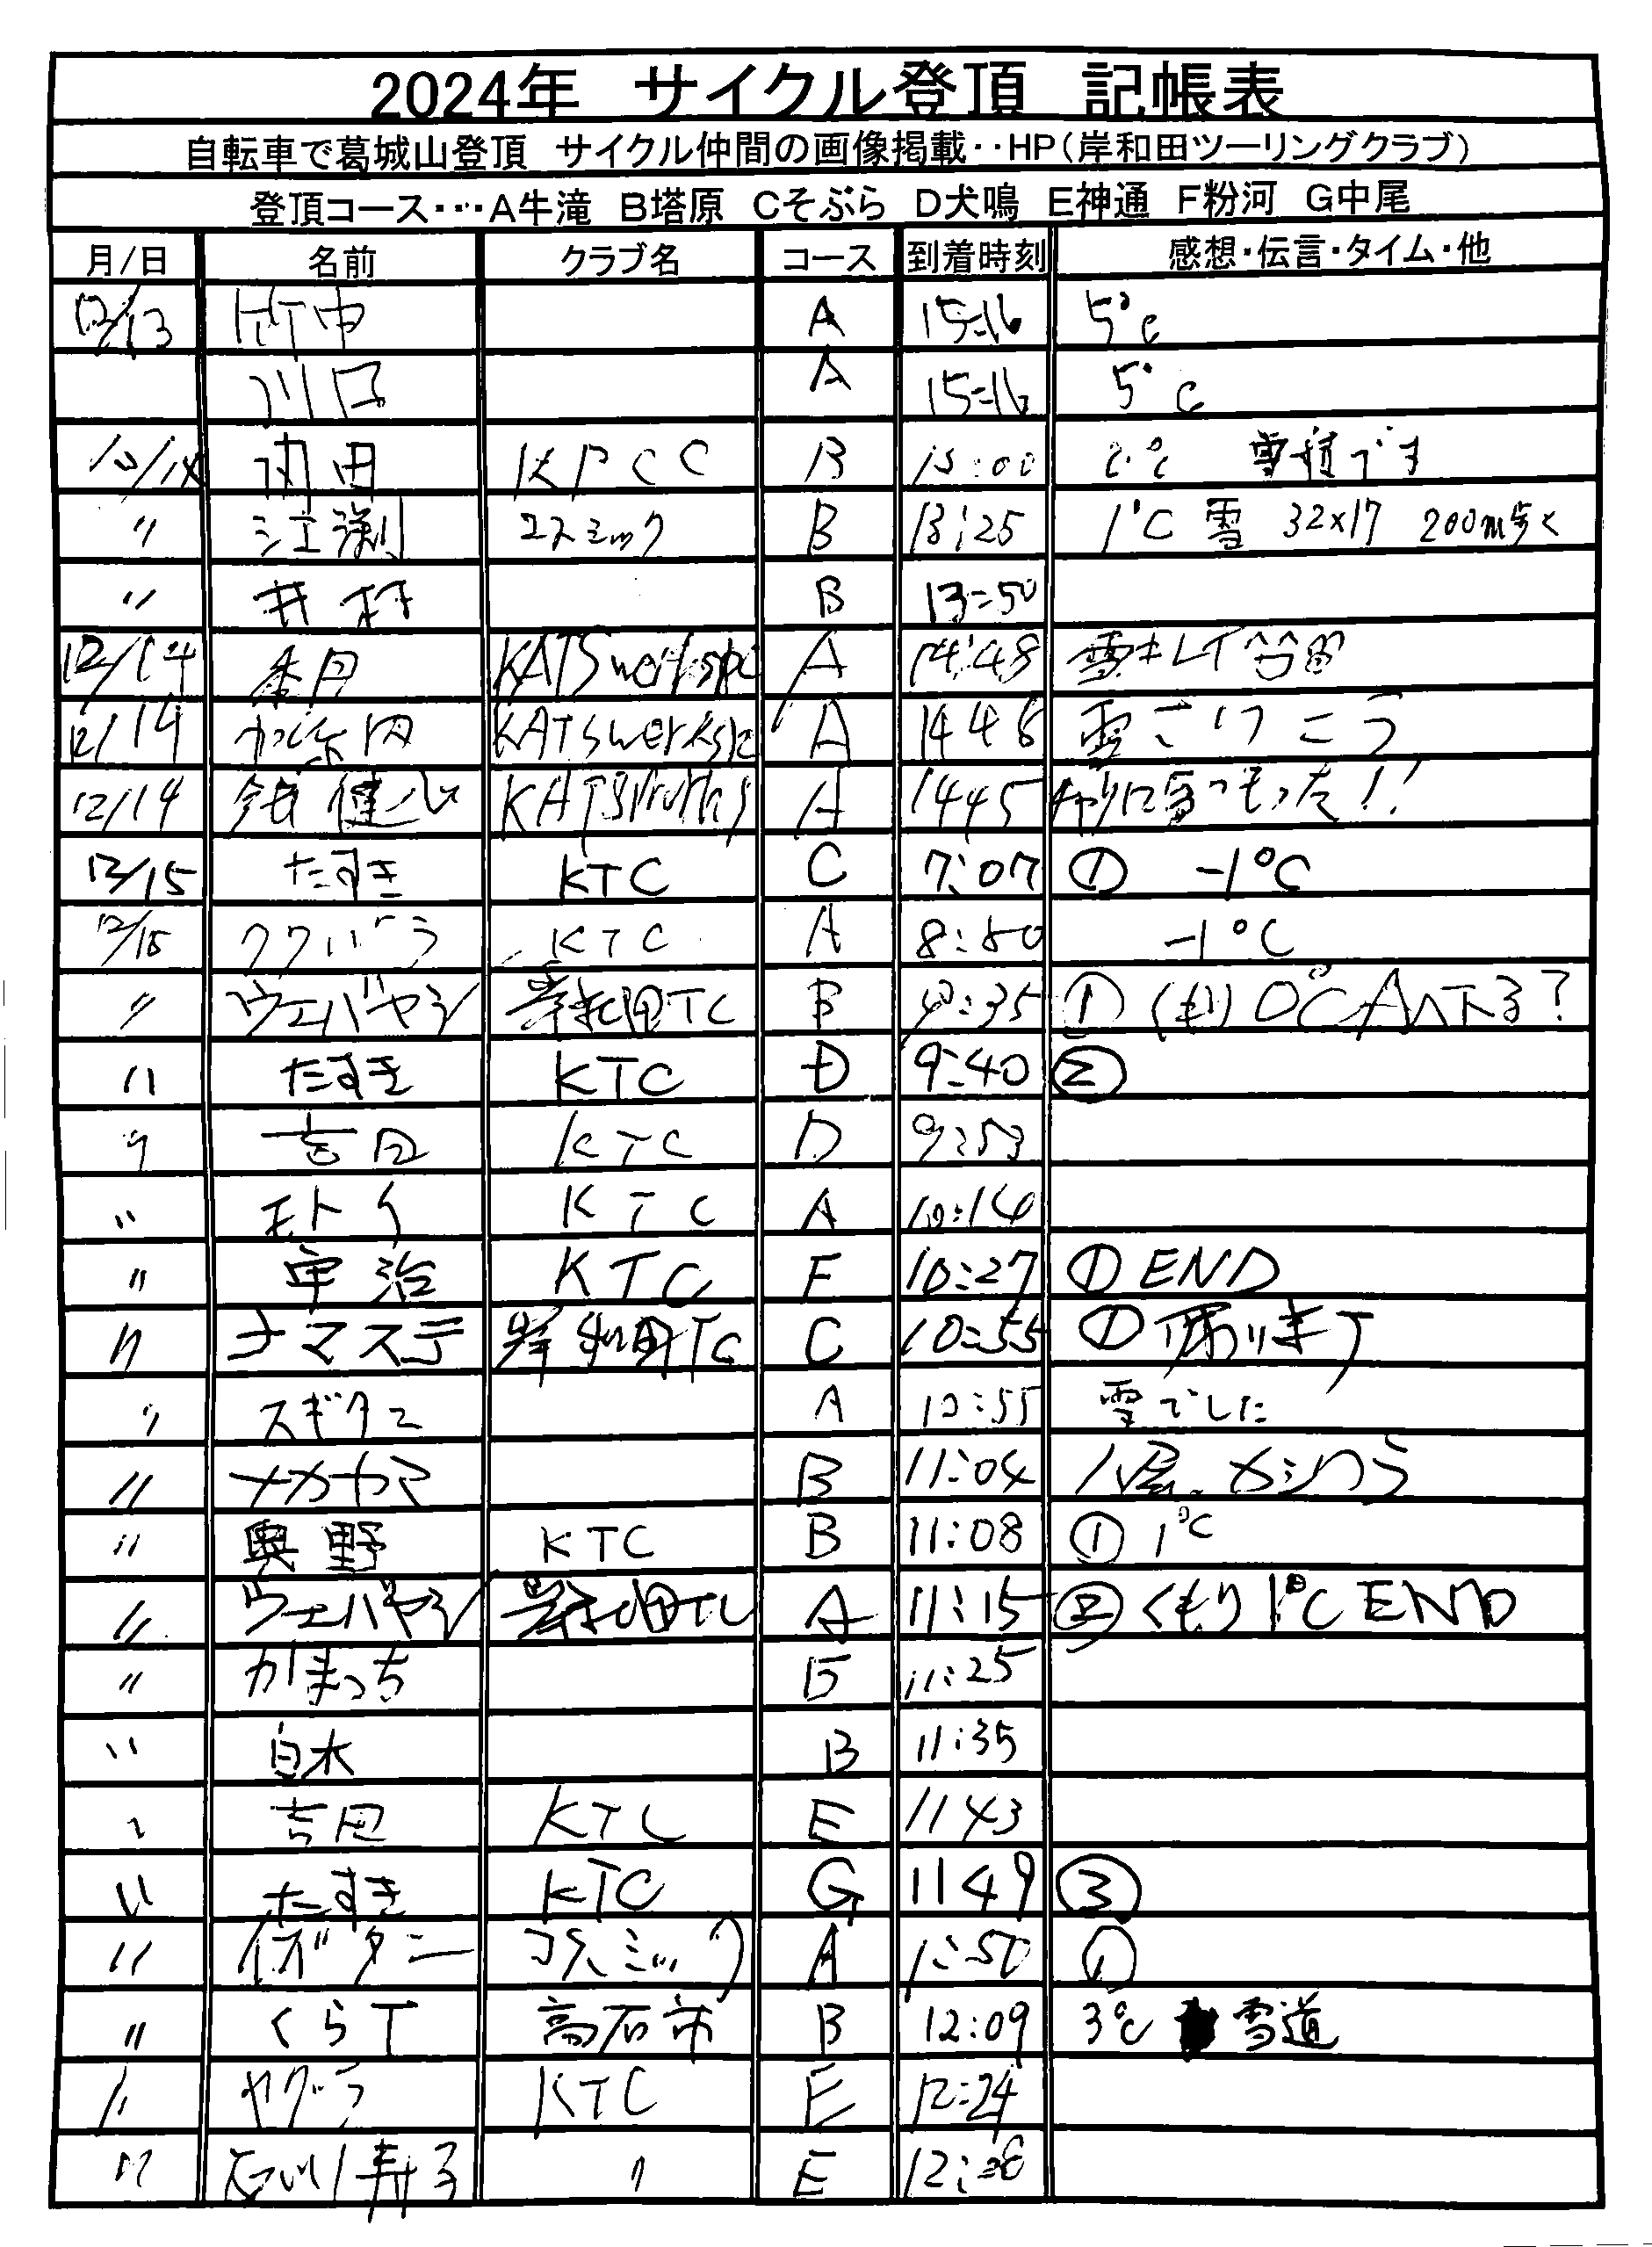 2024年 サイクル登頂 記帳表
自転車で葛城山登頂 サイクル仲間の画像掲載‥HP(岸和田ツーリングクラブ)
登頂コース・・・A牛滝 B塔原 Cそぶら D犬鳴 E神通 F粉河 G中尾
月/日 名前 クラブ名 コース 到着時刻 感想・伝言・タイム・他
12/13 竹中 A 15=16 5℃
川口 A 15=16 5℃
12/14 内田 KPCC B 13:00 0℃ 雪積です
〃 江渕 コスミック B 13:25 1℃ 雪 32×17 200m歩く
〃 井村 B 13=50
12/14 KATSworkspc A 14:48 雪キレイ
12/14 KATSworksp A 1446 雪
12/14 KATSworks A 1445
12/15 たすき KTC C 7:07 ① -1℃
12/15 クワバラ KTC A 8:50 -1℃
〃 ウエバヤシ 岸和田TC B 9:35 ① くもり 0℃ Aへ下る?
〃 たすき KTC D 9:40 ②
〃 吉田 KTC D 9:53
〃 モトイ KTC A 10:14
〃 宇治 KTC F 10:27 ① END
〃 ナマステ 岸和田TC C 10:55 ① 帰ります
〃 スギタニ A 10:55 雪でした
〃 ナカヤマ B 11:04
〃 奥野 KTC B 11:08 ① 1℃
〃 ウエバヤシ 岸和田TC A 11:15 ② くもり 1℃ END
〃 かまっち B 11:25
〃 白木 B 11:35
〃 吉田 KTC E 1143
〃 たすき KTC G 1149 ③
〃 イボタニ コスミック A 11:50 ①
〃 くらT 高石市 B 12:09 3℃ 雪道
〃 ヤグラ KTC E 12:24
〃 石川寿子 〃 E 12:26